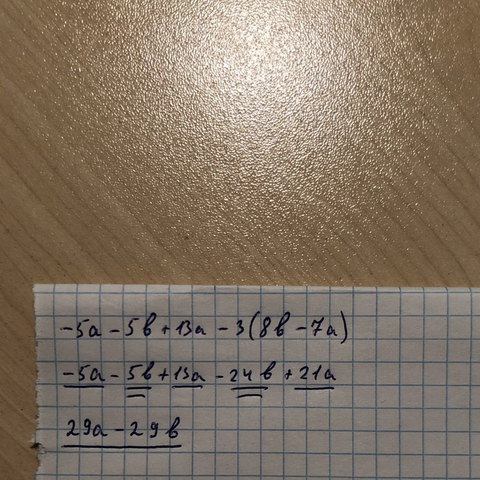 -5a - 5b + 13a - 3(8b - 7a)
-5a - 5b + 13a - 24b + 21a
29a - 29b